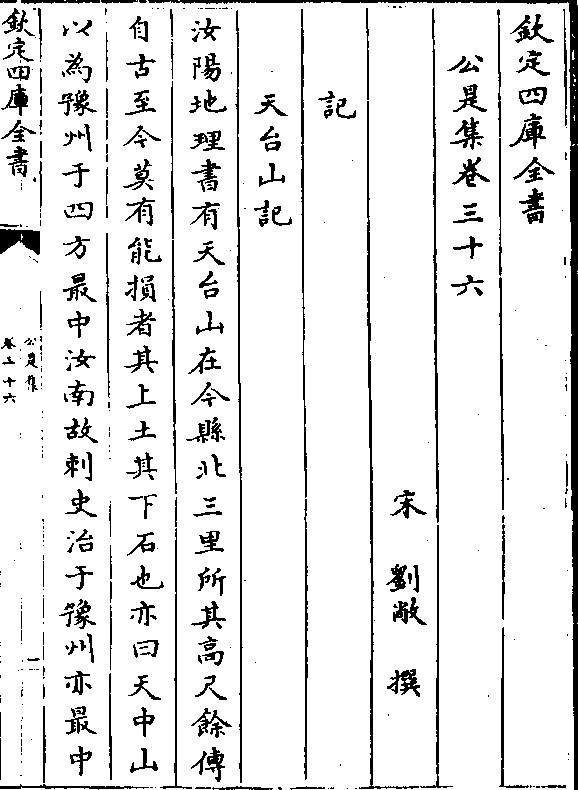 欽定四庫全書
公是集卷三十六
宋 劉敞 撰
記
天台山記
汝陽地理書有天台山在今縣北三里所其高尺餘傳
自古至今莫有能損者其上土其下石也亦曰天中山
以為豫州于四方最中汝南故刺史治于豫州亦最中
欽定四庫全書
公是集
卷三十六
一